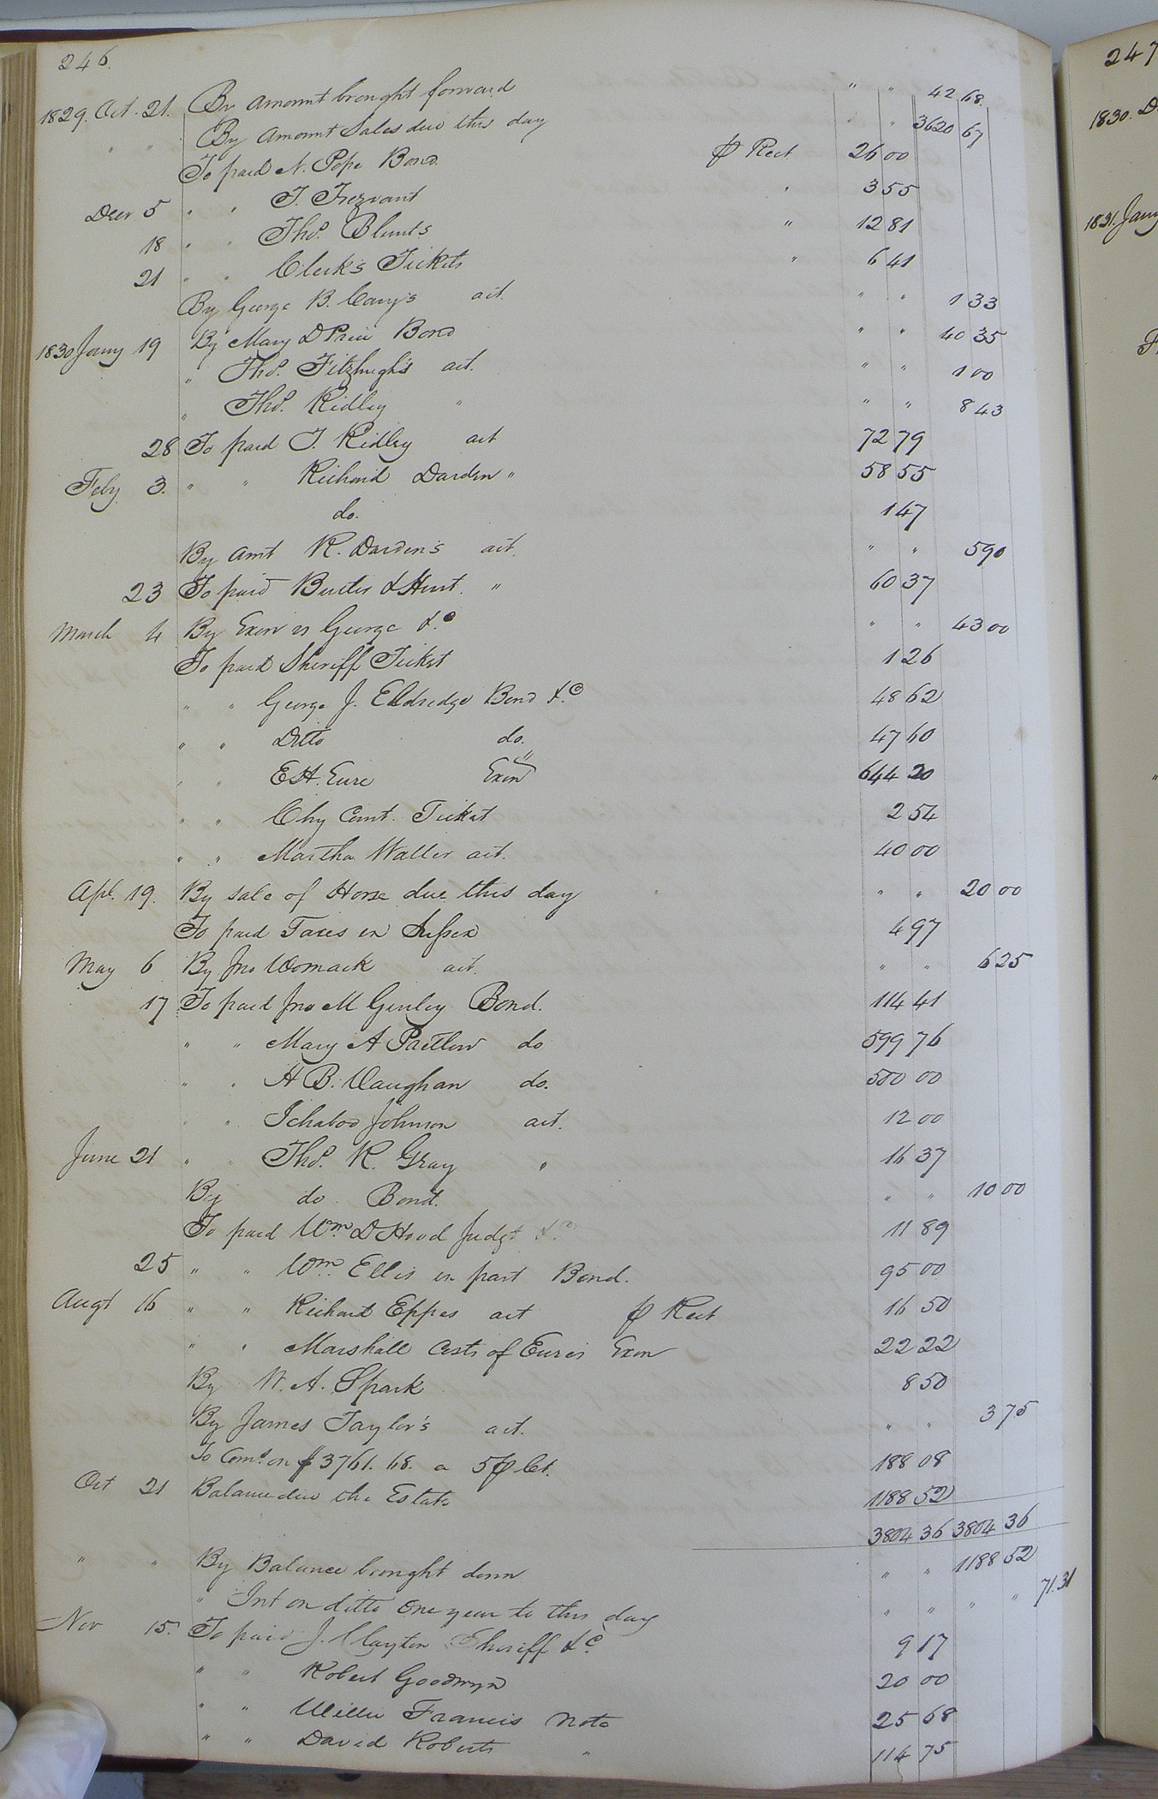 246.
1829. Oct. 21. By Amount brought forward " " 42 68.
" " By Amount Sales due this day " " 3620 67
To paid N. Pope Bond ⅌ Rect 26 00
Decr 5 " " T. Trezvant " 3 55
18 " " Thos. Blunts " 12 81
21 " " Clerk's Tickets " 6 41
By George B. Cary's act. " " 1 33
1830 Jany 19 By Mary D Price Bond " " 40 35
" Thos. Fitzhugh's act. " " 1 00
" Thos. Ridley " " " 8 43
28 To paid T. Ridley act 72 79
Feby 3. " " Richard Darden " 58 55
do. 1 47
By amt R. Darden's act. " " 5 90
23 To paid Butts & Hunt. " 60 37
March 4 By Exon vs George &c " " 43 00
To paid Sheriff Ticket 1 26
" " George J. Elldredge Bond &c 48 62
" " Ditto do. 47 60
" " E H. Eure Exon 644 20
" " Chy Court. Ticket 2 54
" " Martha Waller act. 40 00
Apl. 19. By sale of Horse due this day " " 20 00
To paid Taxes in Sussex 4 97
May 6 By Jno Womack act. " " 6 25
17 To paid Jno M Ginley Bond. 114 41
" " Mary A Partlow do 599 76
" " H B. Vaughan do. 500 00
" " Ichabod Johnson act. 12 00
June 21 " " Thos. R. Gray " 16 37
By do Bond. " " 10 00
To paid Wm D Hood Judgt &c 11 89
25 " " Wm. Ellis in part Bond. 95 00
Augt 16 " " Richard Eppes act ⅌ Rect 16 50
" " Marshall Costs of Eure's Exon 22 22
By W. A. Spark 8 50
By James Taylor's act. " " 3 75
To Coms. on $3761. 68. a 5 ⅌ Ct. 188 08
Oct 21 Balance due the Estate 1188 52
3804 36 3804 36
" " By Balance brought down " " 1188 52
" Int on ditto One year to this day " " " " 71.31
Nov 15. To paid J. Clayton Sheriff &c. 9 17
" " Robert Goodwyn 20 00
" " Willie Francis Note 25 68
" " David Roberts " 114 75
247
1830. D
1831. Jany